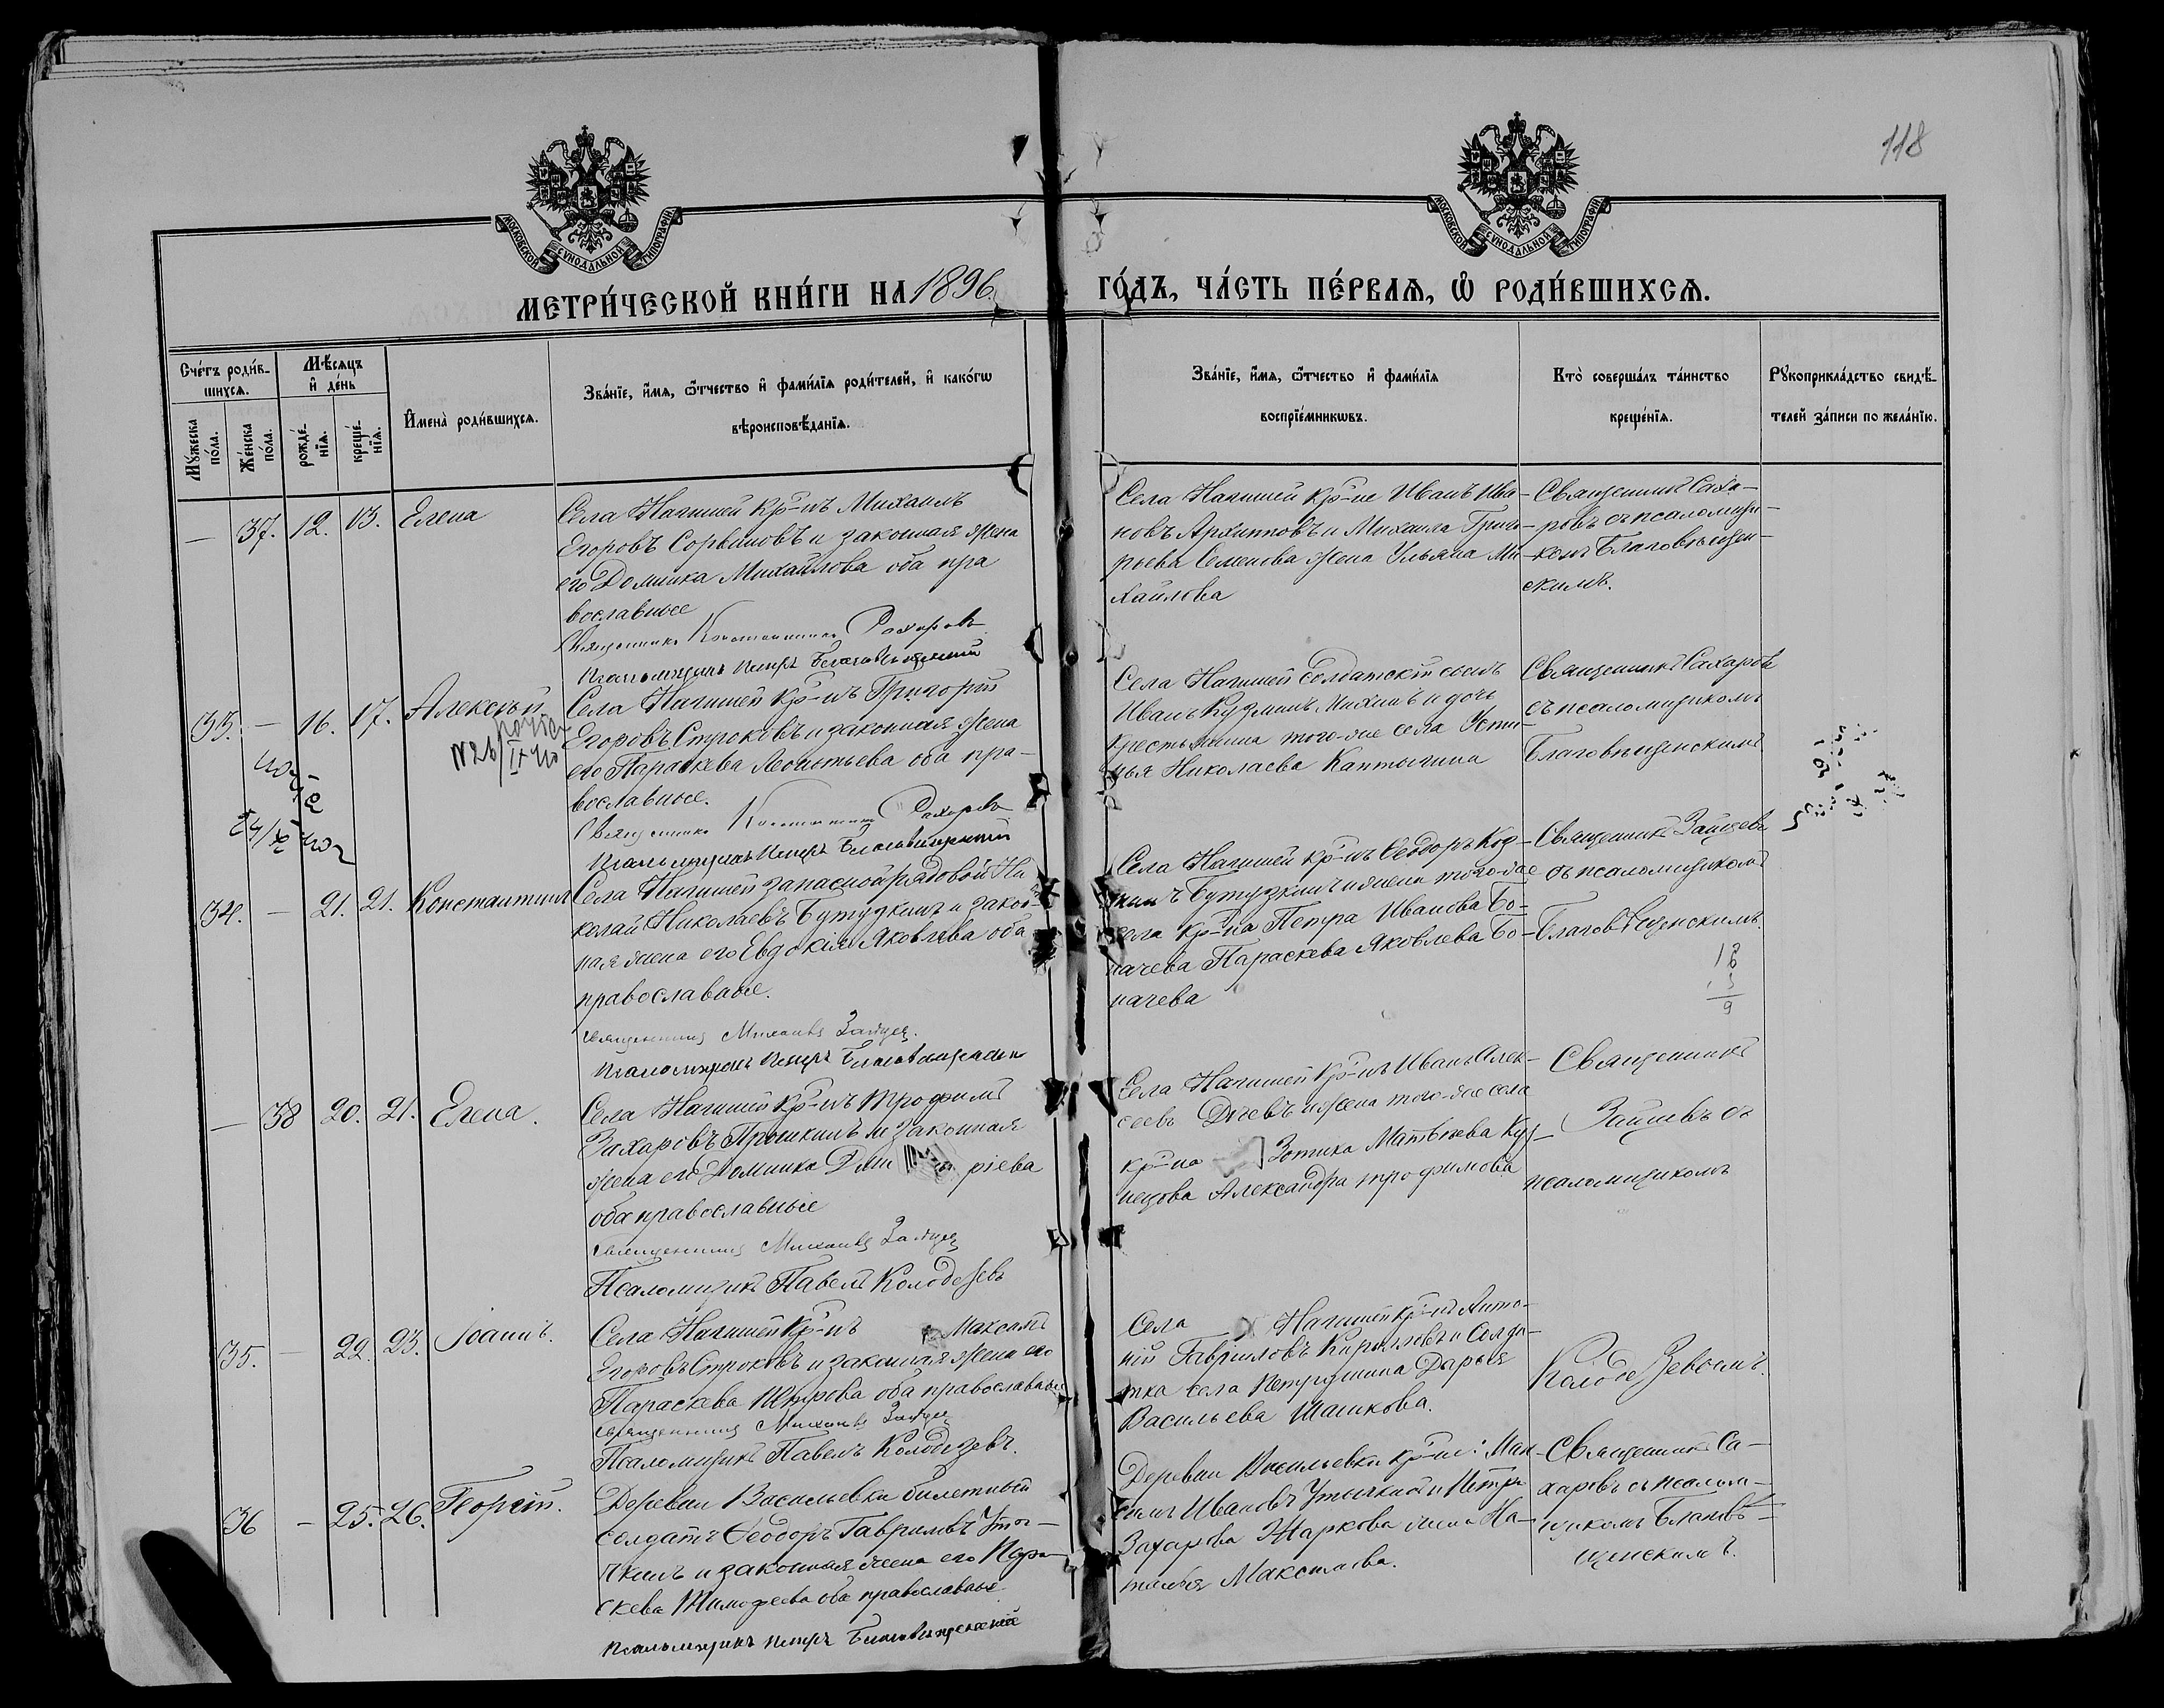 118
МОСКОВСКОЙ СУНОДАЛЬНОЙ ТИПОГРАФІИ
МОСКОВСКОЙ СУНОДАЛЬНОЙ ТИПОГРАФІИ
МЕТРИ́ЧЕСКОЙ КНИ́ГИ НА 1896.
ГО́ДЪ, ЧА́СТЬ ПЕ́РВАѦ, Ѡ҆ РОДИ́ВШИХСѦ.
Сче́тъ роди́в-
шихсѧ.
Мꙋ́жеска по́ла.
Же́нска по́ла.
Мѣ́сѧцъ
и҆ де́нь
рожде́-нїѧ.
креще́-нїѧ.
И҆мена̀ роди́вшихсѧ.
Зва́нїе, и҆́мѧ, ѻ҆́тчество и҆ фами́лїѧ роди́телей, и҆ како́гѡ
вѣроисповѣ́данїѧ.
Зва́нїе, и҆́мѧ, ѻ҆́тчество и҆ фами́лїѧ
воспрїе́мникѡвъ.
Кто̀ соверша́лъ та́инство
креще́нїѧ.
Рꙋкоприкла́дство свидѣ́-
телей за́писи по жела́нїю.
— 37. 12. 13. Елена
Села Нагишей кр-нъ Михаилъ
Егоровъ Сорвиновъ и законная жена
его Домника Михайлова оба пра
вославные
Священникъ Константинъ Сахаровъ
Псаломщикъ Петръ Благовѣщенскій
Села Нагишей кр-не Иванъ Ива-
новъ Архиповъ и Михаила Григо-
рьева Семенова жена Ульяна Ми-
хайлова
Священникъ Саха-
ровъ съ псаломщи-
комъ Благовѣщен-
скимъ.
33. — 16. 17. Алексѣй
№26
Села Нагишей кр-нъ Григорій
Егоровъ Строковъ и законная жена
его Параскева Леонтьева оба пра-
вославные.
Священникъ Константинъ Сахаровъ
Псаломщикъ Петръ Благовѣщенскій
Села Нагишей солдатскій сынъ
Иванъ Кузминъ Михинъ и дочь
крестьянина того-же села Усти-
нья Николаева Каптыгина
Священникъ Сахаровъ
съ псаломщикомъ
Благовѣщенскимъ
34. — 21. 21. Константинъ
Села Нагишей запасной рядовой Ни
колай Николаевъ Бутузкинъ и закон-
ная жена его Евдокія Яковлева оба
православные.
Священникъ Михаилъ Зайцев.
Псаломщикъ Петръ Благовѣщенскій
Села Нагишей кр-нъ Ѳеодоръ Коз-
минъ Бутузкинъ и жена того-же
села кр-на Петра Иванова Бо-
начева Параскева Яковлева Бо-
начева
Священникъ Зайцевъ
съ псаломщикомъ
Благовѣщенскимъ.
9
— 38 20. 21. Елена.
Села Нагишей кр-нъ Трофимъ
Захаровъ Прошкинъ и законная
жена его Домника Дмитріева
оба православные
Священникъ Михаилъ Зайцев
Псаломщикъ Павелъ Колодезевъ
Села Нагишей кр-нъ Иванъ Алек-
сеевъ и жена того-же села
кр-на Зотика Матвѣева Куз-
нецова Александра Трофимова
Священникъ
Зайцевъ съ
псаломщикомъ
35. — 22. 23. Іоаннъ.
Села Нагишей кр-нъ Максимъ
Егоровъ Строковъ и законная жена его
Параскева Петрова оба православные
Священникъ Михаилъ Зайцев
Псаломщикъ Павелъ Колодезевъ.
Села Нагишей кр-нъ Анто-
ній Гавріиловъ Кирилловъ и Солда-
тка села Петрушина Дарья
Васильева Шашкова.
Колодезевымъ.
36 — 25. 26. Георгій.
Деревни Васильевки билетный
солдатъ Ѳеодоръ Гавриловъ Уточ-
кинъ и законная жена его Пара-
скева Тимофеева оба православные
Псаломщикъ Петръ Благовѣщенскій
Деревни Васильевки кр-не: Мак-
симъ Ивановъ Уточкинъ и Петра
Захарова Жаркова жена На-
талья Максимова.
Священникъ Са-
харовъ съ псалом-
щикомъ Благовѣ-
щенскимъ.